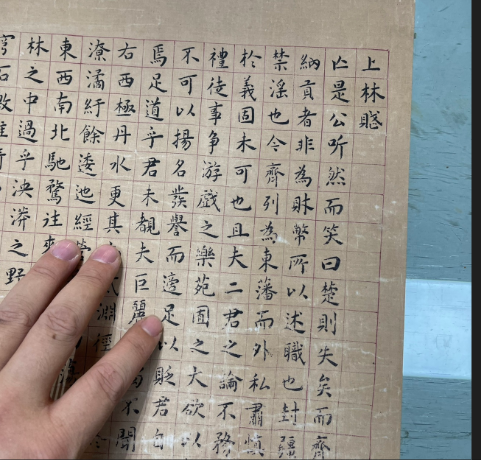 上林賦
亡是公听然而笑曰楚則失矣而齊
納貢者非為財幣所以述職也封疆
禁淫也今齊列為東藩而外私肅慎
於義固未可也且夫二君之論不務
禮徒事爭游戲之樂苑囿之大欲以
不可以揚名發譽而適足以貶君自
焉足道乎君未覩夫巨麗不聞
右西極丹水更其淵徑
潦潏紆餘委迤經
東西南北馳騖往來
林之中過乎泱漭之野
穹石